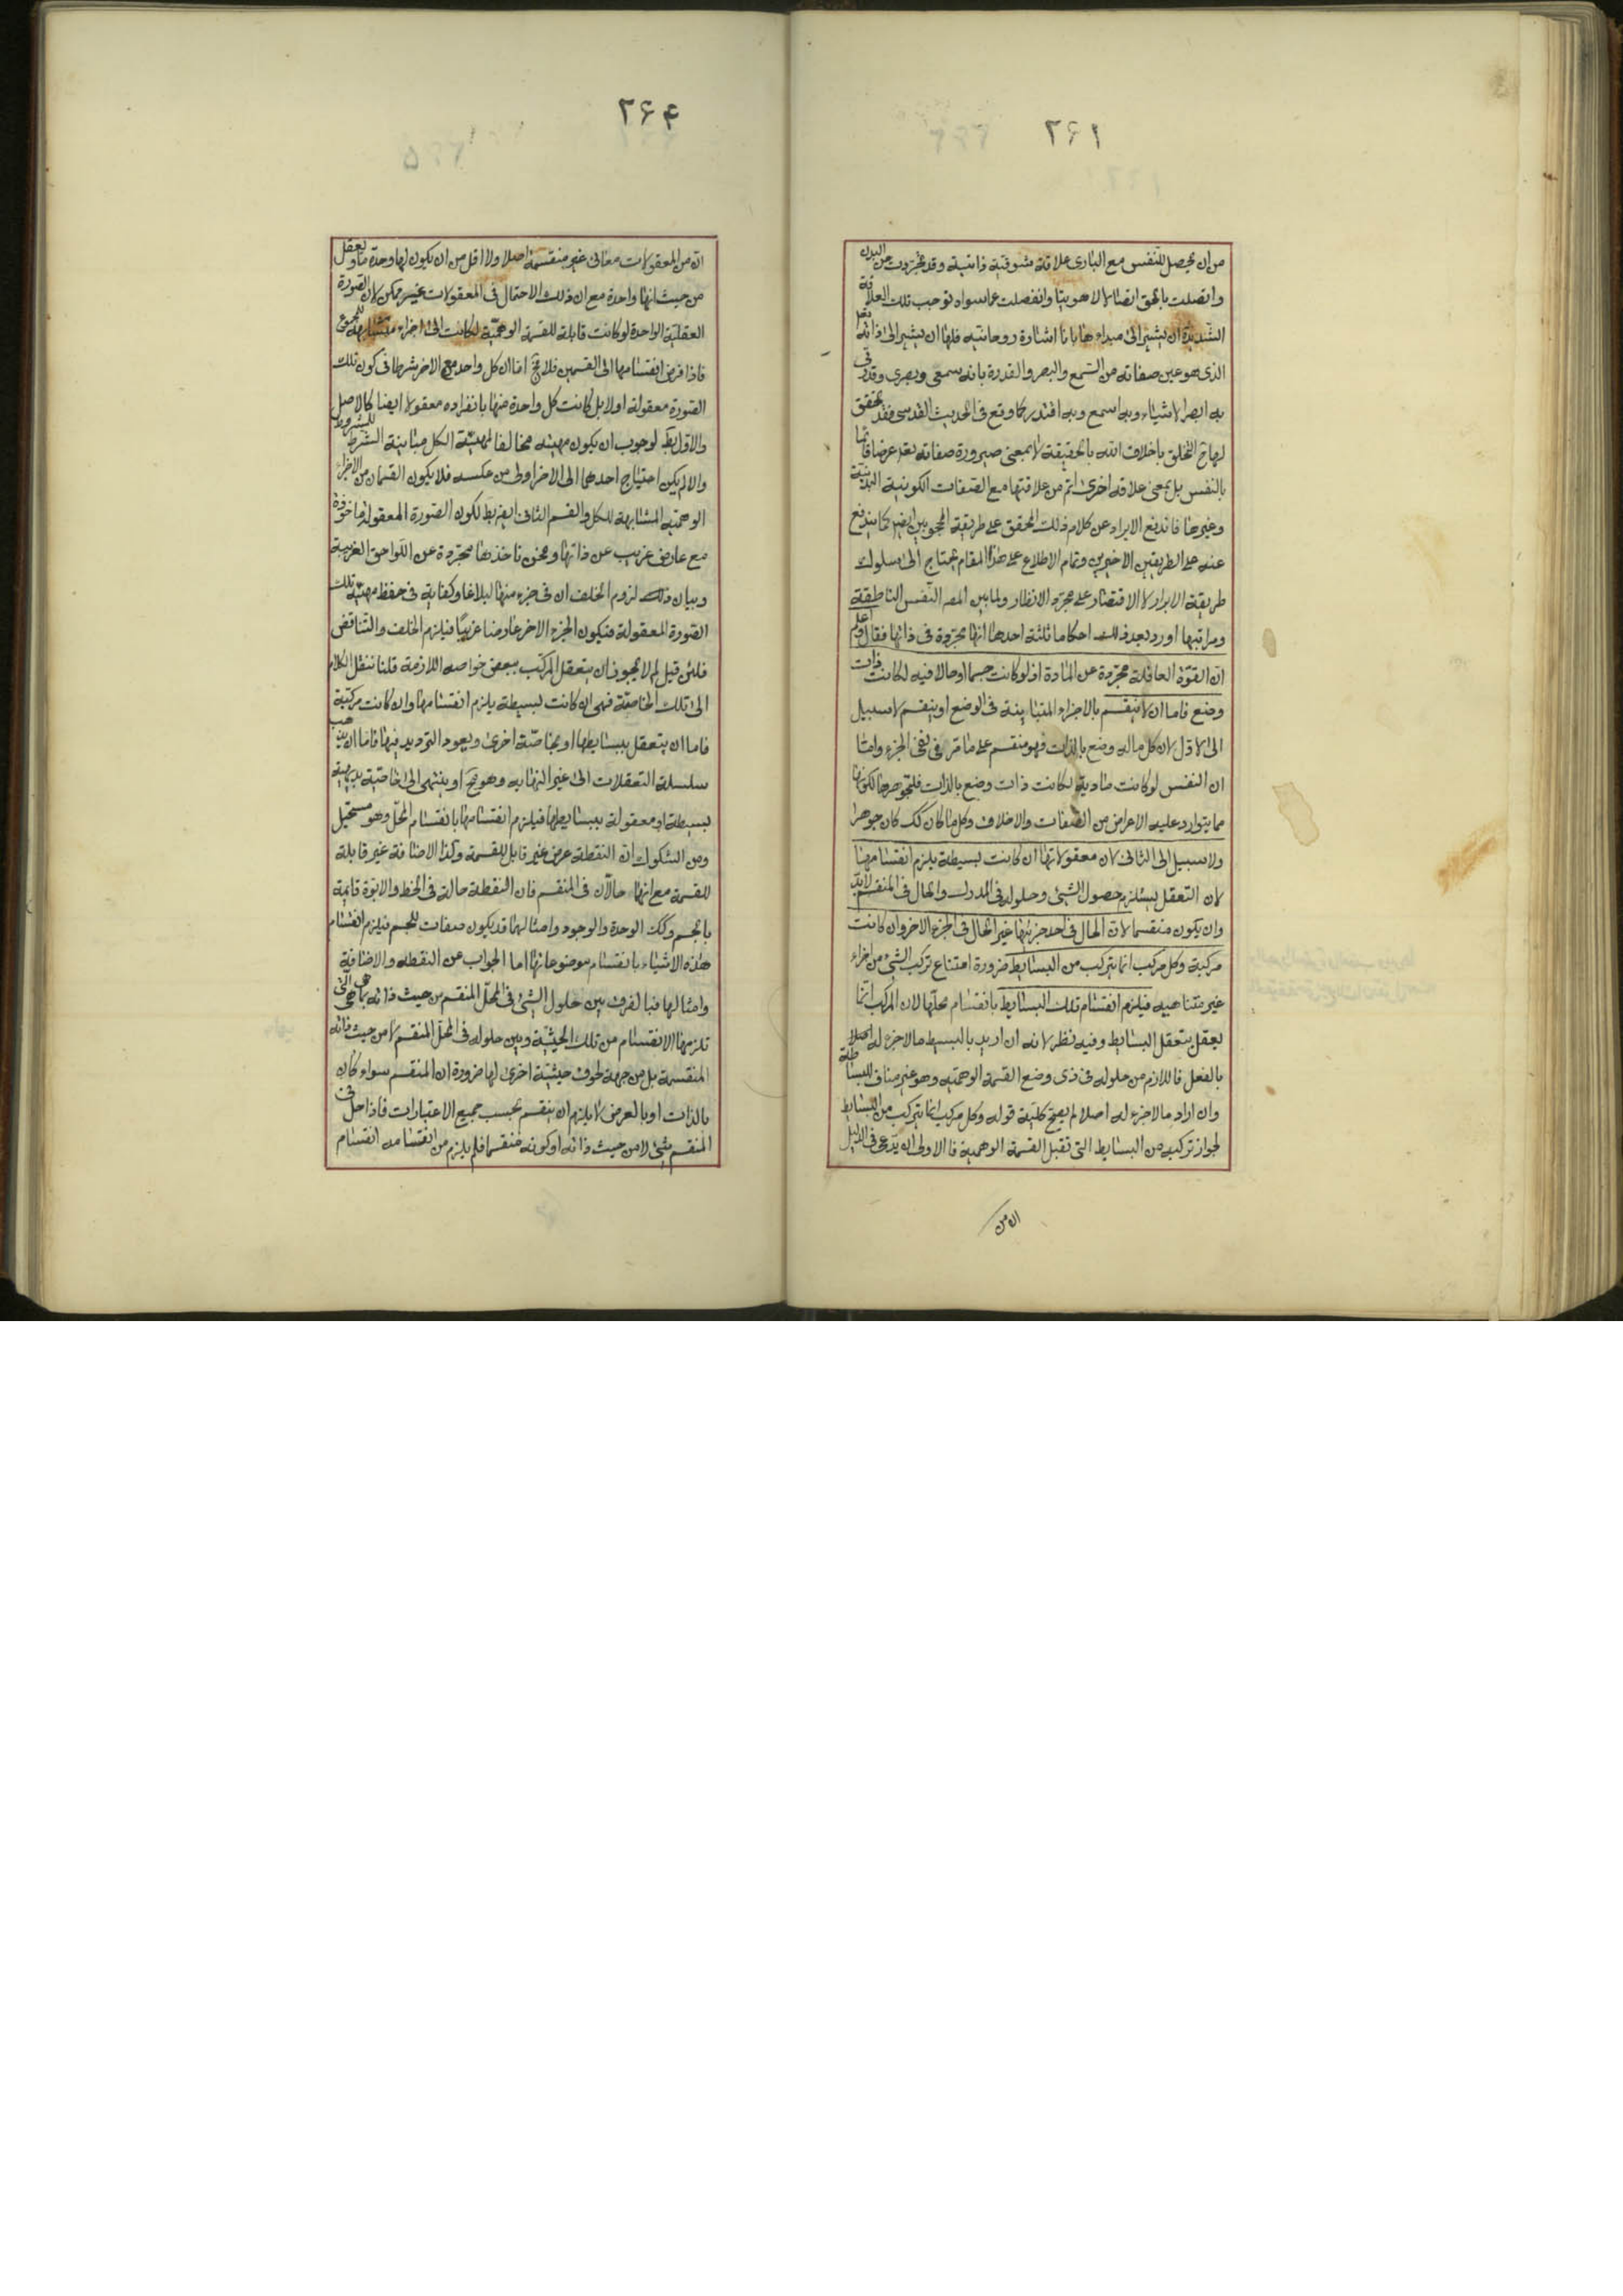 ۲۶۱
من ان يحصل للنفس مع البارى علاقة شوقية ذاتية وقد تجردت من البدن
واتصلت بالحق اتصالا لاهوتيا وانفصلت عما سواه توجب تلك العلاقة
الشديدة ان يشير الى مبداءها بانا اشارة روحانية فلها ان يشير الى ذاته تعا
الذى هو عين صفاته من السمع والبصر والقدرة بانه سمعى وبصرى وقدرتى
به ابصر الاشياء وبه اسمع وبه اقتدر كما وقع فى الحديث القدسى فقد تحقق
لهاح التخلق باخلاق الله بالحقيقة لا بمعنى صيرورة صفاته تعا عرضا قائما
بالنفس بل بمعنى علاقة اخرى اتم من علاقتها مع الصفات الكونية البدنية
وغيرها فاندفع الايراد عن كلام ذلك المحقق على طريقة المحجوبين ايضا كما يندفع
عنه على الطريقين الاخيرين وتمام الاطلاع على هذا المقام يحتاج الى سلوك
طريقة الابرار لا الاقتصار على مجرد الانظار ولما بين المصر النفس الناطقة
ومراتبها اورد بعد ذلك احكاما ثلثة احدها انها مجردة فى ذاتها فقال واعلم
ان القوة العاقلة مجردة عن المادة اذ لو كانت جسما او حالا فيه لكانت ذات
وضع فاما ان لا ينقسم بالاجزاء المتباينة فى الوضع او ينقسم لا سبيل
الى الاول لان كل ماله وضع بالذات فهو منقسم على ما مر فى نفى الجزء واما
ان النفس لو كانت مادية لكانت ذات وضع بالذات فلتجوهرها لكونها
مما يتوارد عليه الاعراض من الصفات والاخلاق وكل ما كان كك كان جوهرا
ولا سبيل الى الثانى لان معقولاتها ان كانت بسيطة يلزم انقسامها
لان التعقل يستلزم حصول الشئ وحلوله فى المدرك والحال فى المنقسم لابد
وان يكون منقسما لان الحال فى احد جزئيها غير الحال فى الجزء الاخر وان كانت
مركبة وكل مركب انما يتركب من البسايط ضرورة امتناع تركب الشئ من اجزاء
غير متناهيه فيلزم انقسام تلك البسايط بانقسام محلها لان المركب انما
يعقل بتعقل البسايط وفيه نظر لانه ان اريد بالبسيط ما لا جزء له اصلا
بالفعل فاللازم من حلوله فى ذى وضع القسمة الوهميه وهو غير مناف للبساطة
وان اراد ما لا جزء له اصلا لم يصح كلية قوله وكل مركب انما يتركب من البسايط
لجواز تركبه من البسايط التى تقبل القسمة الوهمية فالاولى ان يدعى فى الدليل
ان من
۲۶۴
ان من المعقولات معانى غير منقسمة اصلا ولا اقل من ان يكون لها وحدة ما وتعقل
من حيث انها واحدة مع ان ذلك الاحتمال فى المعقولات غير ممكن لان الصورة
العقلية الواحدة لو كانت قابلة للقسمة الوهمية لكانت الى اجزاء متشابهة للمجموع
فاذا فرض انقسامها الى القسمين فلا يخ اما ان كل واحد مع الاخر شرط فى كون تلك
الصورة معقولة اولا بل كانت كل واحدة منها بانفراده معقولا ايضا كالاصل
والاول بط لوجوب ان يكون مهيته مخالفا لمهيته الكل مباينة الشرط للمشروط
والا لم يكن احتياج احدهما الى الاخر اولى من عكسه فلا يكون القسمان من الاجزاء
الوهمية المتشابهة للكل والقسم الثانى ايض بط لكون الصورة المعقولة ماخوذة
مع عارض غريب عن ذاتها ونحن ناخذها مجردة عن اللواحق الغريبة
وبيان ذلك لزوم الخلف ان فى جزء منها لبلاغا وكفاية فى حفظ مهية تلك
الصورة المعقولة فيكون الجزء الاخر عارضا غريبا فيلزم الخلف والتناقض
فلئن قيل لم لا يجوز ان يتعقل المركب ببعض خواصه اللازمة قلنا ننقل الكلام
الى تلك الخاصة فهى ان كانت بسيطة يلزم انقسامها وان كانت مركبة
فاما ان يتعقل ببسايطها او بخاصة اخرى ويعود الترديد فيها فاما ان يذهب
سلسلة التعقلات الى غير النهايه وهو مح او ينتهى الى خاصية بديهية
بسيطة او معقولة ببسايطها فيلزم انقسامها بانقسام المحل وهو مستحيل
ومن الشكوك ان النقطة عرض غير قابل للقسمة وكذا الاضافة غير قابلة
للقسمة مع انهما حالان فى المنقسم فان النقطة حالة فى الخط والابوة قايمة
بالجسم وكك الوحدة والوجود وامثالهما قد يكون صفات للجسم فيلزم انقسام
هذه الاشياء بانقسام موضوعاتها اما الجواب عن النقطه والاضافة
وامثالها فبالفرق بين حلول الشئ فى المحل المنقسم من حيث ذاته بما هى التى
تلزمها الانقسام من تلك الحيثية وبين حلوله فى المحل المنقسم لا من حيث ذاته
المنقسمة بل من جهة لحوق حيثية اخرى لها ضرورة ان المنقسم سواء كان
بالذات او بالعرض لا يلزم ان ينقسم بحسب جميع الاعتبارات فاذا حل فى
المنقسم شئ لا من حيث ذاته او كونه منقسما فلم يلزم من انقسامه انقسام